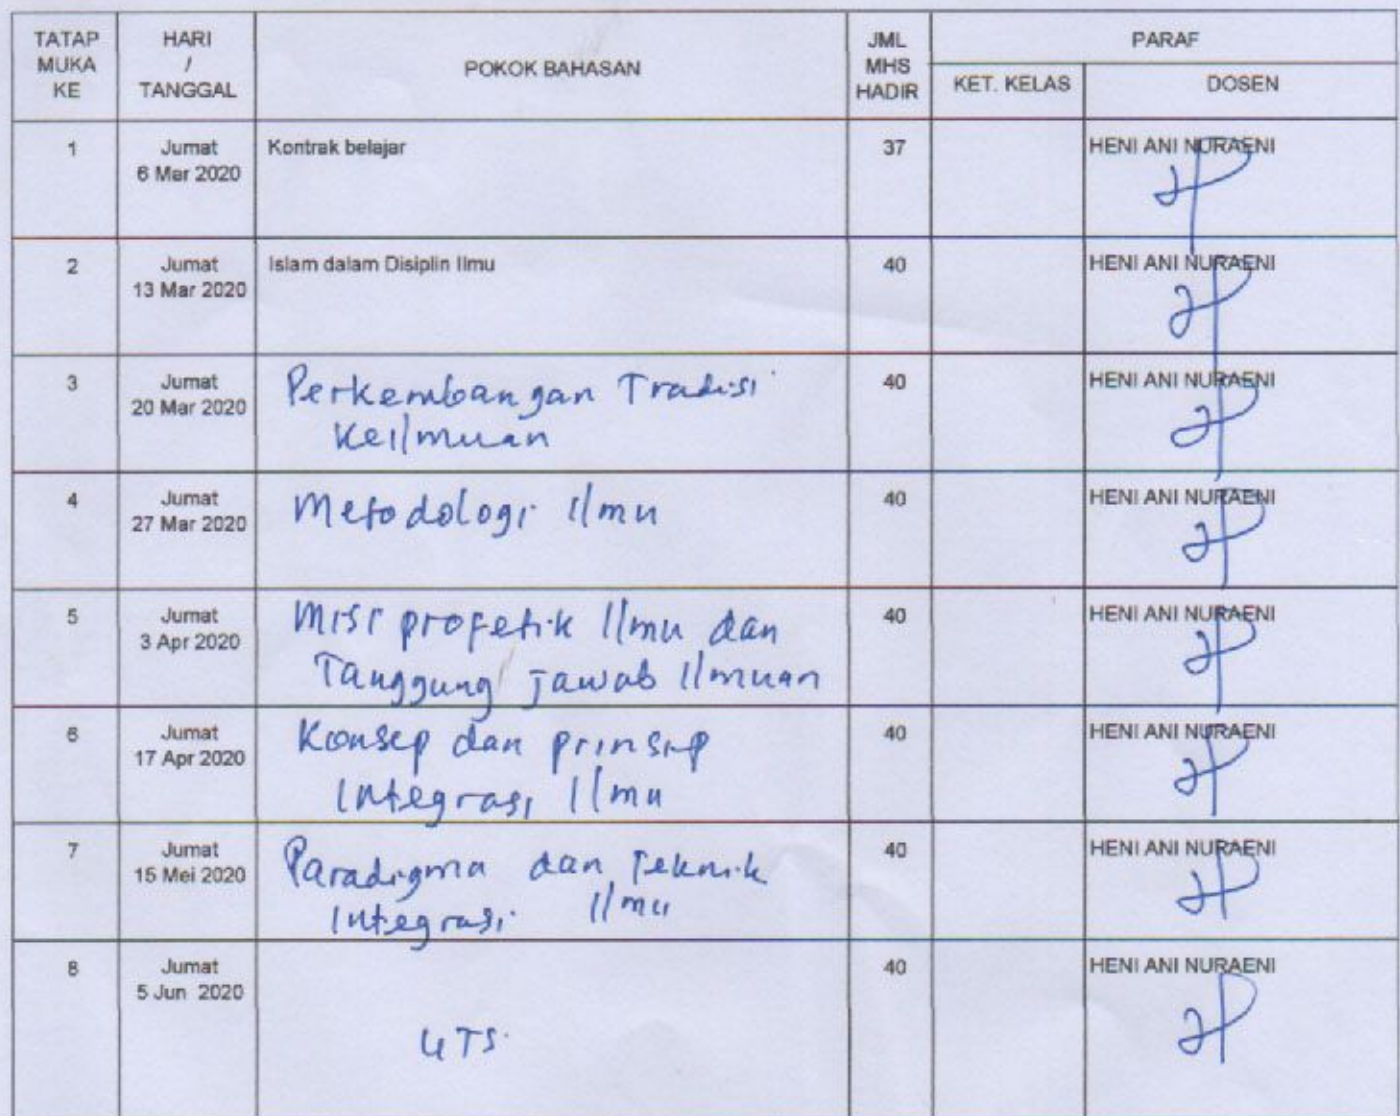 TATAP MUKA KE
HARI / TANGGAL
POKOK BAHASAN
JML MHS HADIR
PARAF
KET. KELAS
DOSEN
1
Jumat
6 Mar 2020
Kontrak belajar
37
HENI ANI NURAENI
2
Jumat
13 Mar 2020
Islam dalam Disiplin Ilmu
40
HENI ANI NURAENI
3
Jumat
20 Mar 2020
Perkembangan Tradisi
Keilmuan
40
HENI ANI NURAENI
4
Jumat
27 Mar 2020
Metodologi Ilmu
40
HENI ANI NURAENI
5
Jumat
3 Apr 2020
Misi profetik Ilmu dan
Tanggung jawab Ilmuan
40
HENI ANI NURAENI
6
Jumat
17 Apr 2020
Konsep dan prinsip
Integrasi Ilmu
40
HENI ANI NURAENI
7
Jumat
15 Mei 2020
Paradigma dan Teknik
Integrasi Ilmu
40
HENI ANI NURAENI
8
Jumat
5 Jun 2020
UTS
40
HENI ANI NURAENI